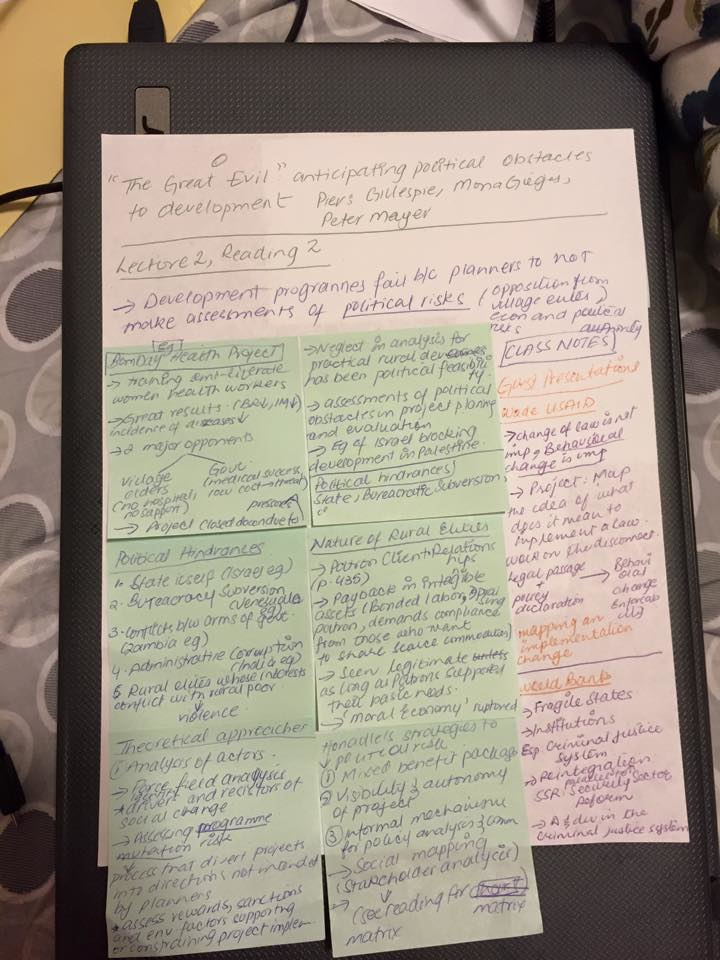 "The Great Evil" anticipating political obstacles
to development Piers Gillespie, Mona Girgis,
Peter Mayer
Lecture 2, Reading 2
→ Development programmes fail b/c planners to not
make assessments of political risks (opposition from
village elites,
econ and political
authority
eg
Bombay Health Project
→ training semi-literate
women health workers
→ Great results (BR↓, IM↓)
incidence of diseases ↓
→ 2 major opponents
Village
elders
(no hospital,
no support)
Govt
(medical success,
low cost → threat)
→ Project closed down due to
pressure
→ Neglect in analysis for
practical rural dev
has been political feasibili
ty.
→ assessments of political
obstacles in project planning
and evaluation
→ Eg of Israel blocking
development in Palestine.
Political hindrances
State, Bureaucratic Subversion,
Political Hindrances
1. State itself (Israel eg)
2. Bureaucracy subversion
(Venezuela
eg)
3. Conflicts b/w arms of govt
(Zambia eg)
4. Administrative Corruption
(India eg)
5. Rural elites whose interests
conflict with rural poor
↓
violence
Nature of Rural Elites
→ Patron Client Relations
hips
(p. 435)
→ Payback in intangible
assets (Bonded labor,
patron, demands compliance
from those who want
to share scarce commodities)
→ Seen legitimate
as long as Patrons supported
their basic needs.
→ 'Moral Economy' ruptured
Theoretical approaches
① Analysis of actors.
→ Force field analysis
drivers and resistors of
social change
→ Assessing programme
mutation risk
↓
process that divert projects
into directions not intended
by planners
* assess rewards, sanctions
and env factors supporting
or constraining project implem
Honadle's strategies to
↓ political risk
① Mixed benefit package
② Visibility & autonomy
of project
③ Informal mechanisms
for policy analysis & comm
→ Social mapping
(Stakeholder analysis)
↓
→ (see reading for
matrix
matrix
CLASS NOTES
Guest Presentations
Wade USAID
→ change of law is not
imp, Behavioral
change is imp
→ Project: Map
the idea of what
does it mean to
implement a law.
work on the disconnect.
legal passage
policy
declaration
→ Behavi
oral
change
Enforcab
ility
mapping an
implementation
change
World Bank
→ Fragile States
→ Institutions
Esp. Criminal Justice
System
→ Reintegration
SSR: Security Sector
Reform
→ A & dev in the
criminal justice system